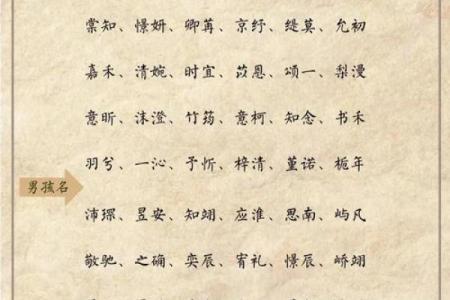 棠知、憬妍、卿苒、京纾、缇莫、允初
嘉禾、清婉、时宜、苡恩、颂一、梨漫
意昕、沫澄、竹筠、意柯、知念、书禾
羽兮、一沁、予忻、梓清、堇诺、栀年
男孩名
沛琛、昱安、知翊、应淮、思南、屿凡
敬驰、之确、奕辰、宥礼、憬辰、峤翊